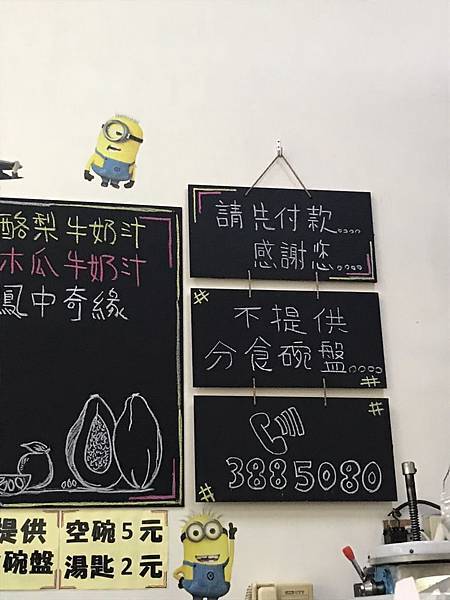 酪梨牛奶汁
木瓜牛奶汁
鳳中奇緣
請先付款....
感謝您....
不提供
分食碗盤....
3885080
提供
碗盤
空碗5元
湯匙2元